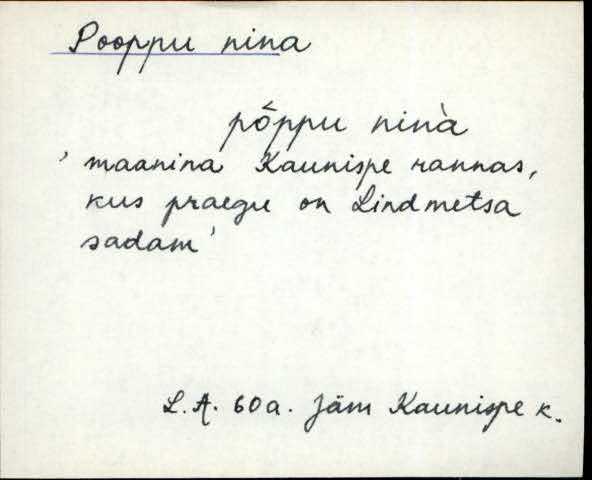 Pooppu nina
põ̭ppu ninà
' maanina Kaunispe rannas,
kus praegu on Lindmetsa
sadam'
L. A. 60 a. Jäm Kaunispe k.